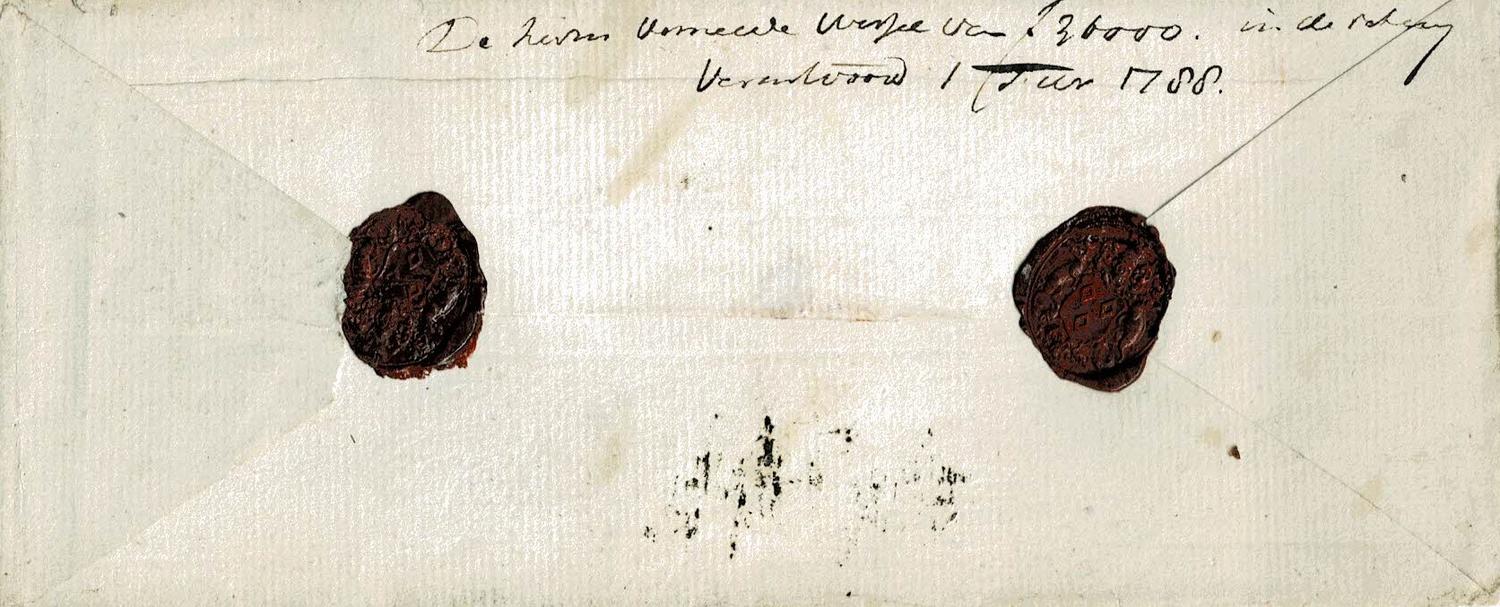 De hierin Vermelde Wissel van ƒ 36000. in de rekeng
Verantwoord 1 Feb 1788.